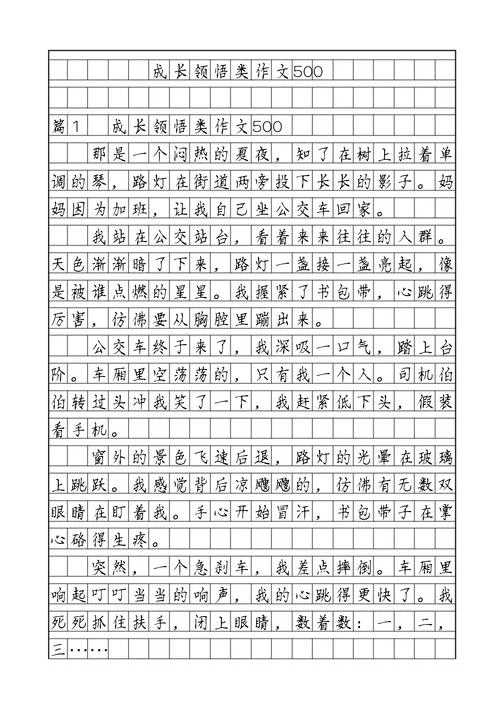 成长领悟类作文500
篇1 成长领悟类作文500
那是一个闷热的夏夜，知了在树上拉着单
调的琴，路灯在街道两旁投下长长的影子。妈
妈因为加班，让我自己坐公交车回家。
我站在公交站台，看着来来往往的人群。
天色渐渐暗了下来，路灯一盏接一盏亮起，像
是被谁点燃的星星。我握紧了书包带，心跳得
厉害，仿佛要从胸腔里蹦出来。
公交车终于来了，我深吸一口气，踏上台
阶。车厢里空荡荡的，只有我一个人。司机伯
伯转过头冲我笑了一下，我赶紧低下头，假装
看手机。
窗外的景色飞速后退，路灯的光晕在玻璃
上跳跃。我感觉背后凉飕飕的，仿佛有无数双
眼睛在盯着我。手心开始冒汗，书包带子在掌
心硌得生疼。
突然，一个急刹车，我差点摔倒。车厢里
响起叮叮当当的响声，我的心跳得更快了。我
死死抓住扶手，闭上眼睛，数着数：一，二，
三……